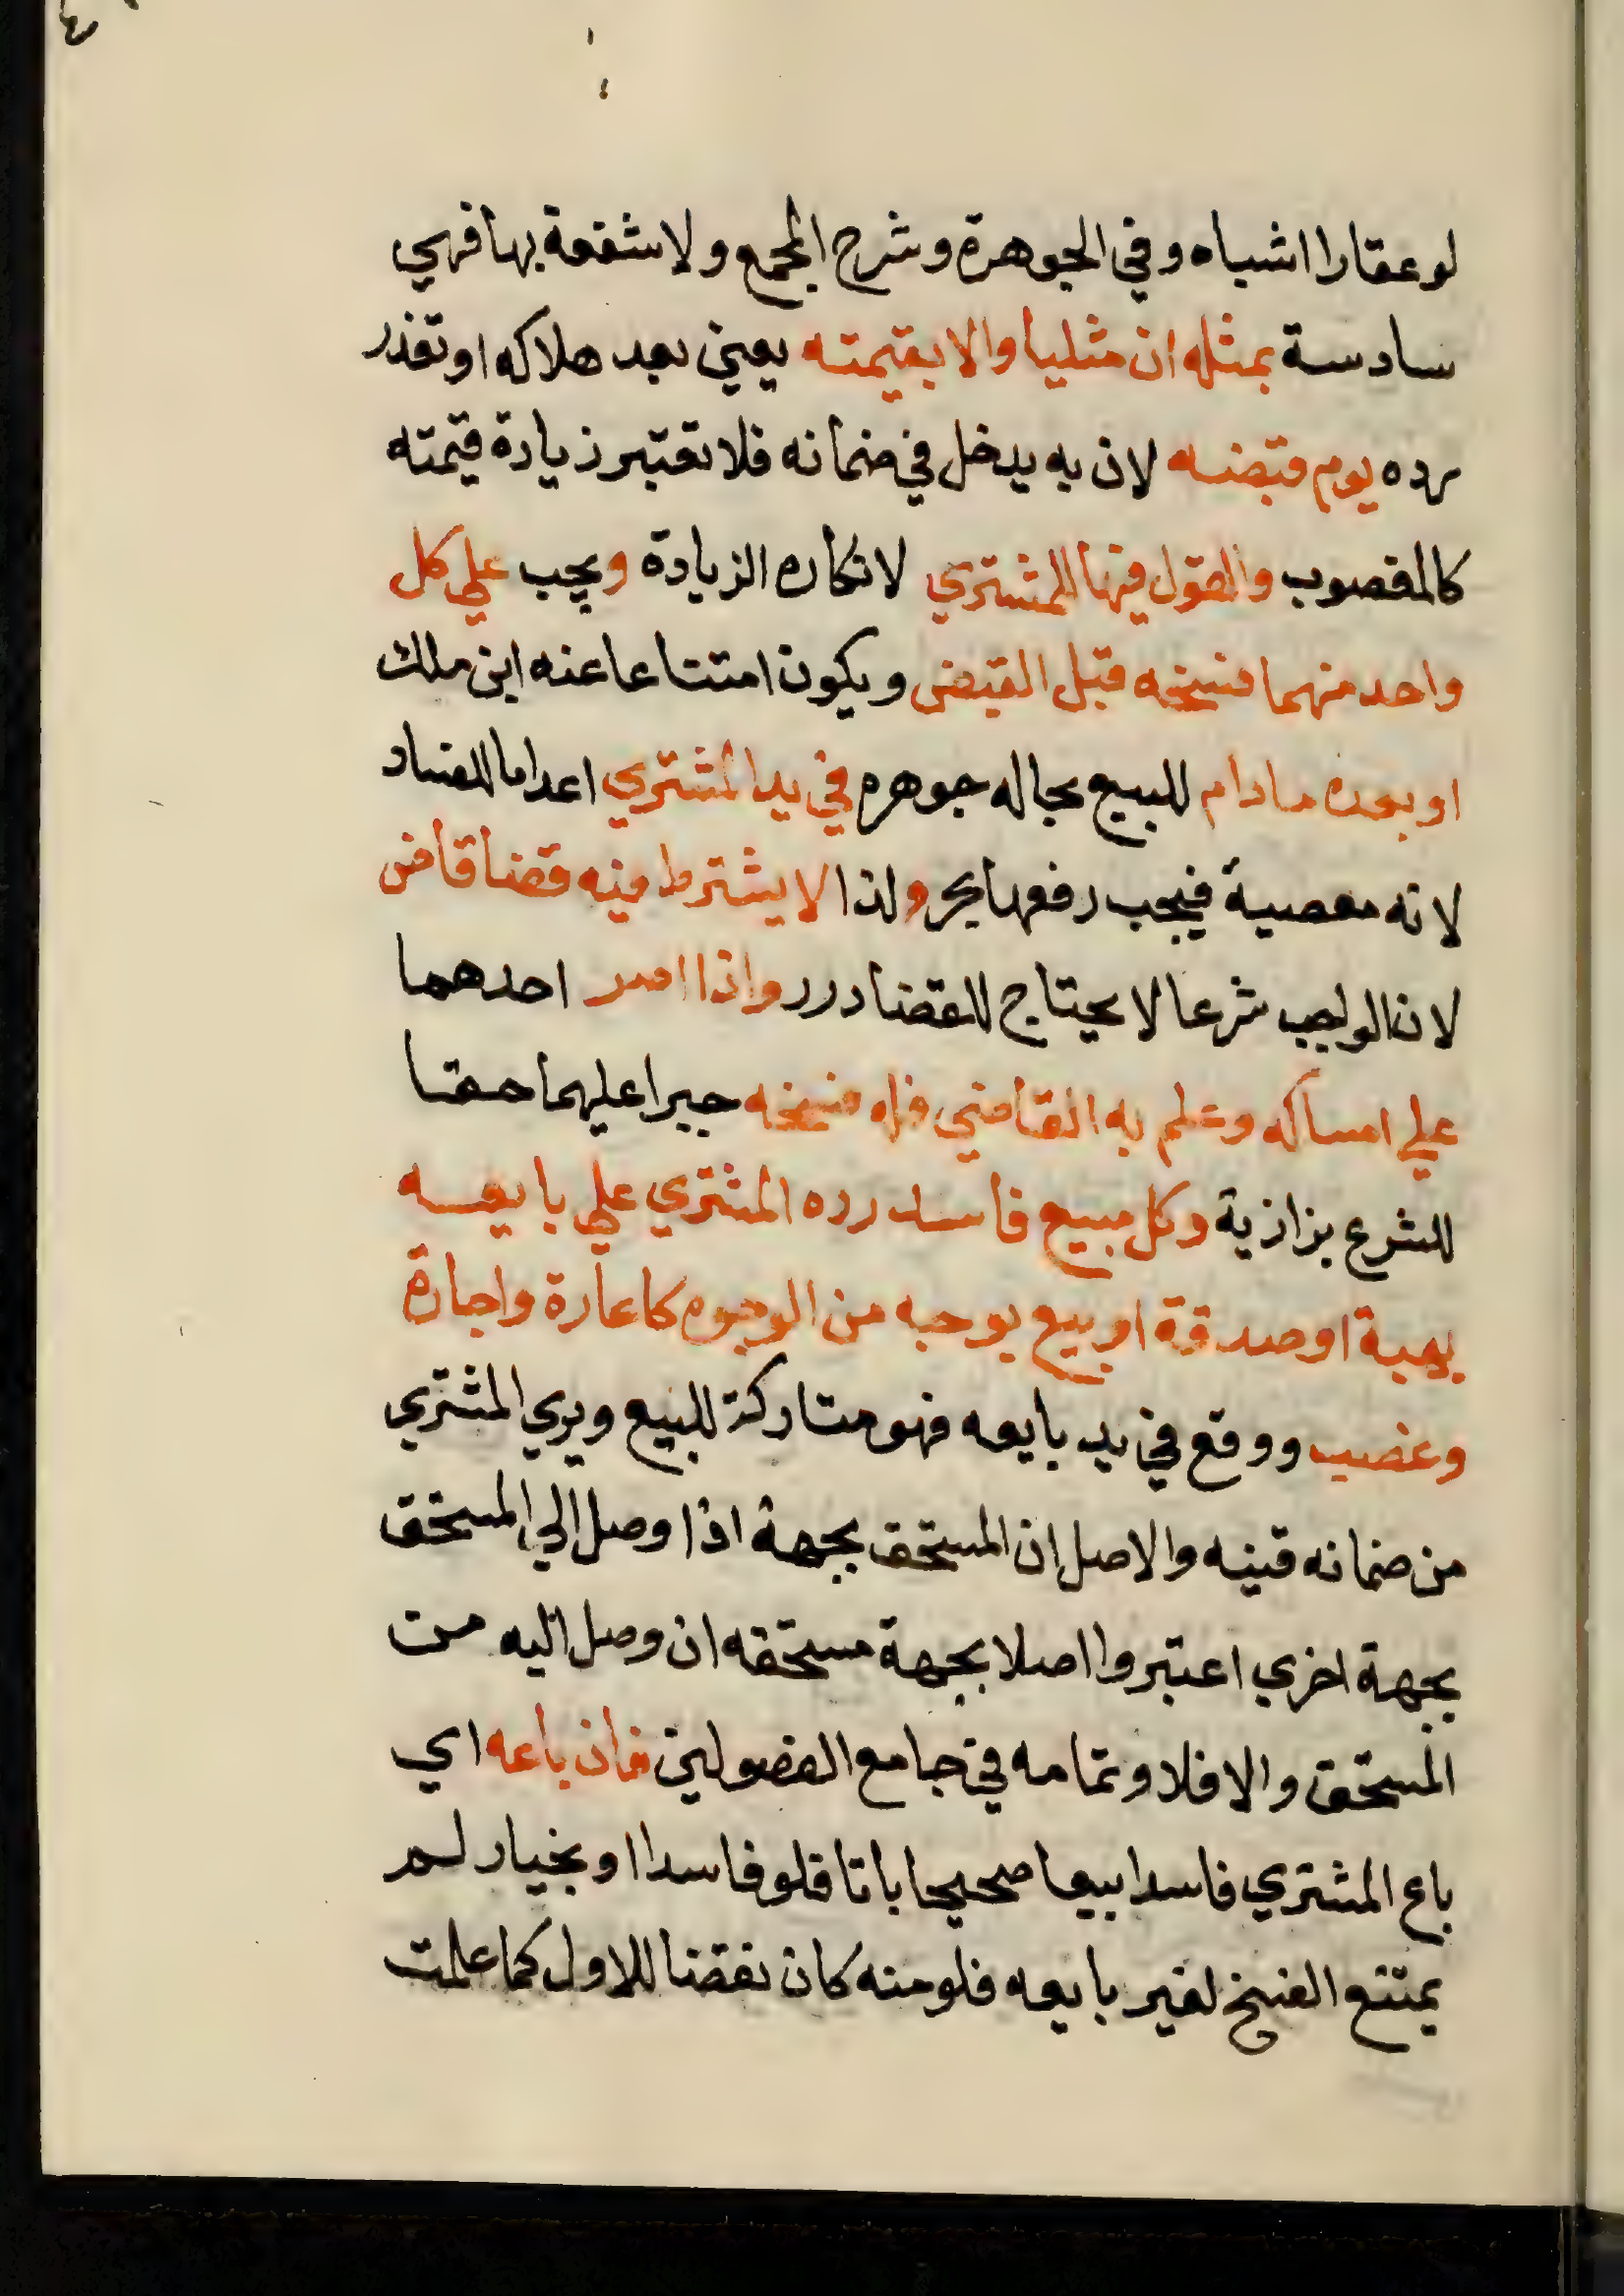 لو عقارا اشباه وفي الجوهرة وشرح المجمع ولا شفعة بها فهي
سادسة بمثله ان مثليا والا بقيمته يعني بعد هلاكه او تعذر
رده يوم قبضه لان به يدخل في ضمانه فلا تعتبر زيادة قيمته
كالمغصوب والقول فيها للمشتري لانكاره الزيادة ويجب علي كل
واحد منهما فسخه قبل القبض ويكون امتناعا عنه ابن ملك
او بعده مادام للبيع بحاله جوهرة في يد المشتري اعداما للفساد
لانه معصية فيجب رفعها بحر ولذا لا يشترط فيه قضا قاض
لان الواجب شرعا لا يحتاج للقضا درر واذا اصر احدهما
علي امساكه وعلم به القاضي فله فسخه جبرا عليهما حقا
للشرع بزازية وكل مبيع فاسد رده المشتري علي بايعه
بهبة او صدقة او بيع بوجه من الوجوه كاعارة واجارة
وغصب ووقع في يد بايعه فهو متاركة للبيع ويري المشتري
من ضمانه قنيه والاصل ان المستحق بجهة اذا وصل الي المستحق
بجهة اخري اعتبر واصلا بجهة مستحقه ان وصل اليه من
المستحق والا فلا وتمامه في جامع الفصولين فان باعه اي
باع المشتري فاسدا بيعا صحيحا باتا فلو فاسدا او بخيار لم
يمتنع الفسخ لغير بايعه فلو منه كان نقضا للاول كما علمت